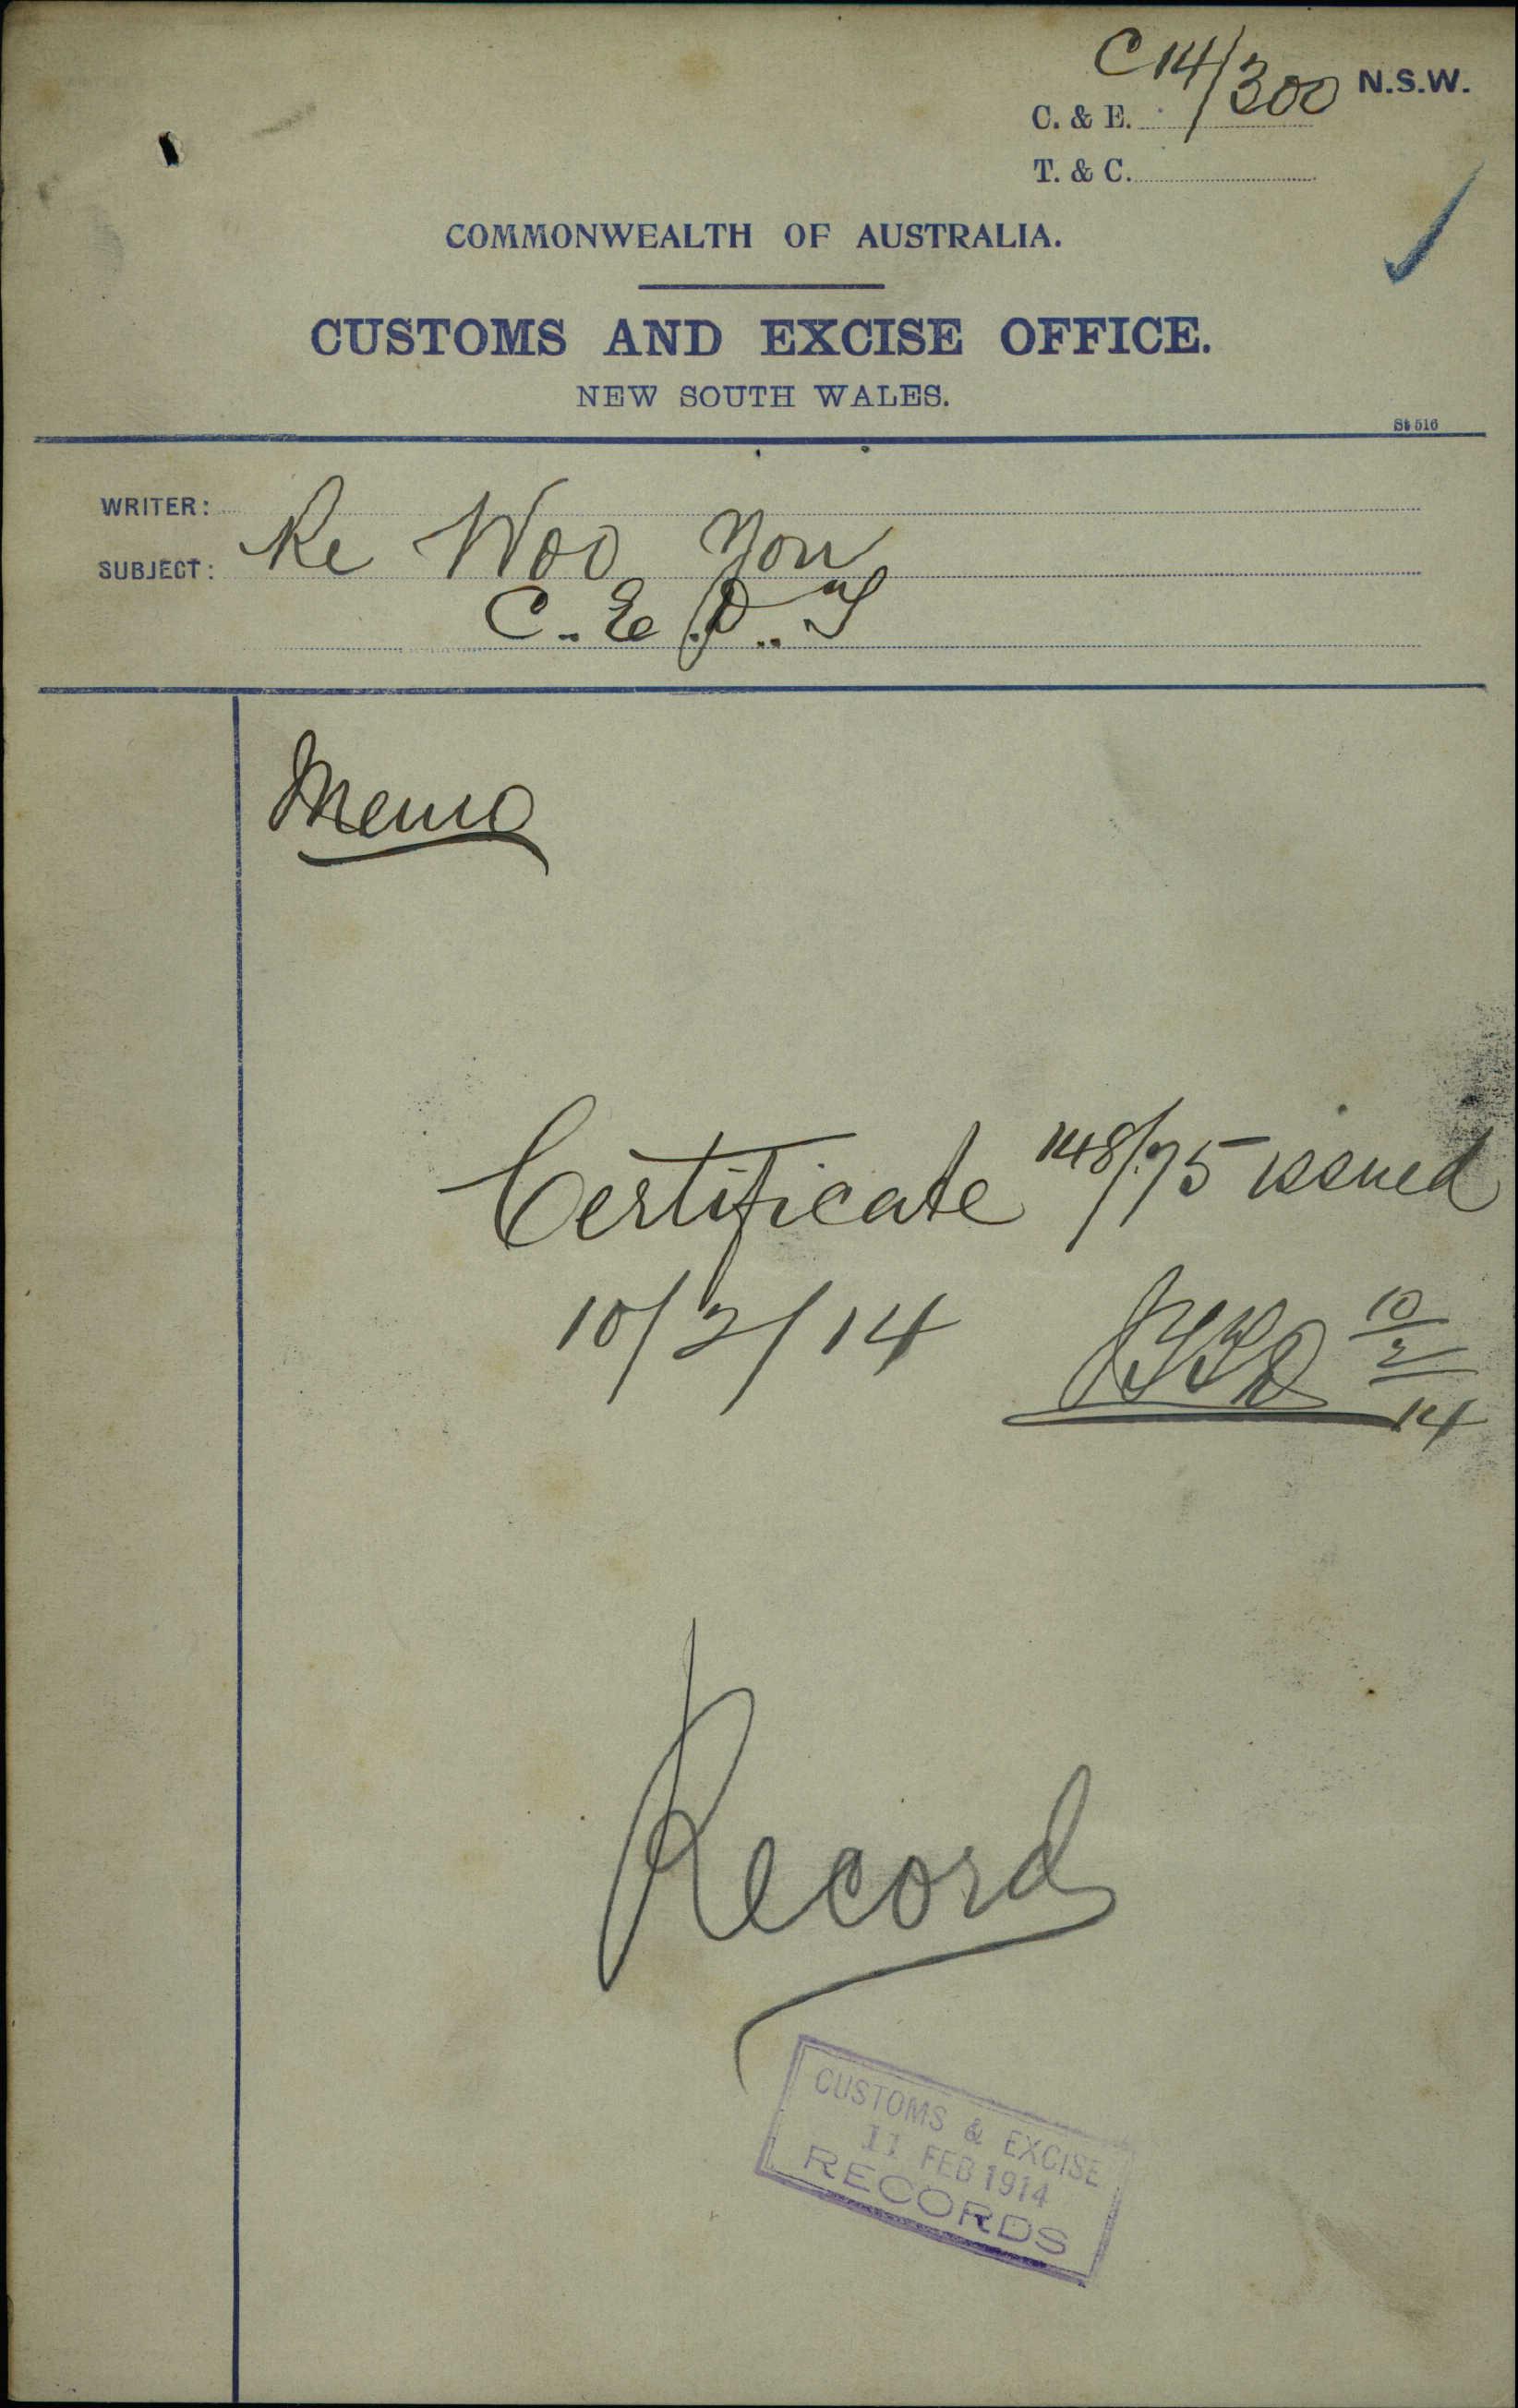 C14/300 N.S.W.
C. & E.
T. & C.
COMMONWEALTH OF AUSTRALIA.
CUSTOMS AND EXCISE OFFICE.
NEW SOUTH WALES.
St 516
WRITER:
SUBJECT: Re Woo You
C.E.D.T
Memo
Certificate 148/75 issued
10/2/14 10/2/14
Record
CUSTOMS & EXCISE
11 FEB 1914
RECORDS